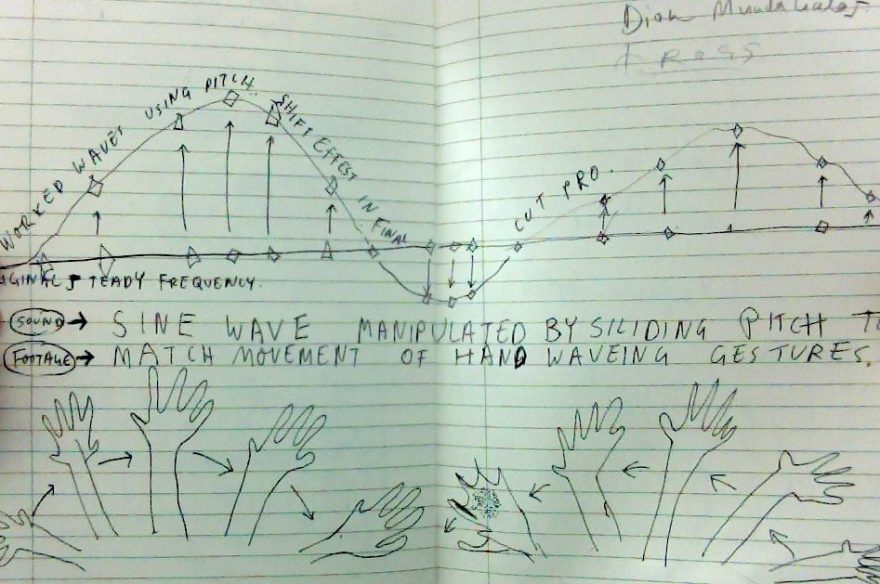 WORKED WAVES USING PITCH SHIFT EFFEST IN FINAL CUT PRO.
GINAL STEADY FREQUENCY.
SOUND → SINE WAVE MANIPULATED BY SILIDING PITCH TO
FOOTAGE → MATCH MOVEMENT OF HAND WAVEING GESTURES.